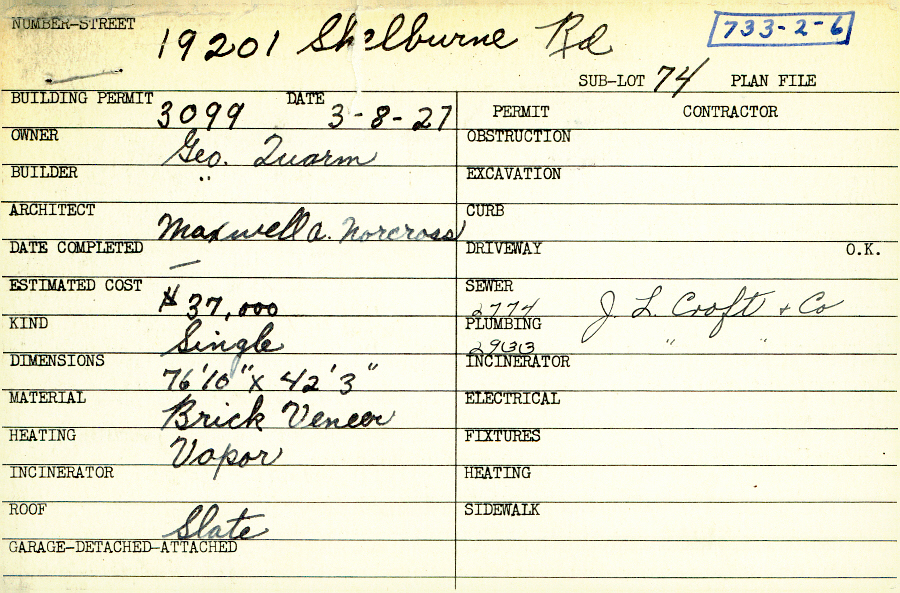 NUMBER-STREET 19201 Shelburne Rd 733-2-6
SUB-LOT 74 PLAN FILE
BUILDING PERMIT 3099 DATE 3-8-27
PERMIT CONTRACTOR
OWNER Geo. Quarm
OBSTRUCTION
BUILDER "
EXCAVATION
ARCHITECT Maxwell A. Norcross
CURB
DATE COMPLETED —
DRIVEWAY O.K.
ESTIMATED COST $37,000
SEWER 2774 J. L. Croft + Co
KIND Single
PLUMBING 2933 " "
DIMENSIONS 76'10" x 42'3"
INCINERATOR
MATERIAL Brick Veneer
ELECTRICAL
HEATING Vapor
FIXTURES
INCINERATOR
HEATING
ROOF Slate
SIDEWALK
GARAGE-DETACHED-ATTACHED